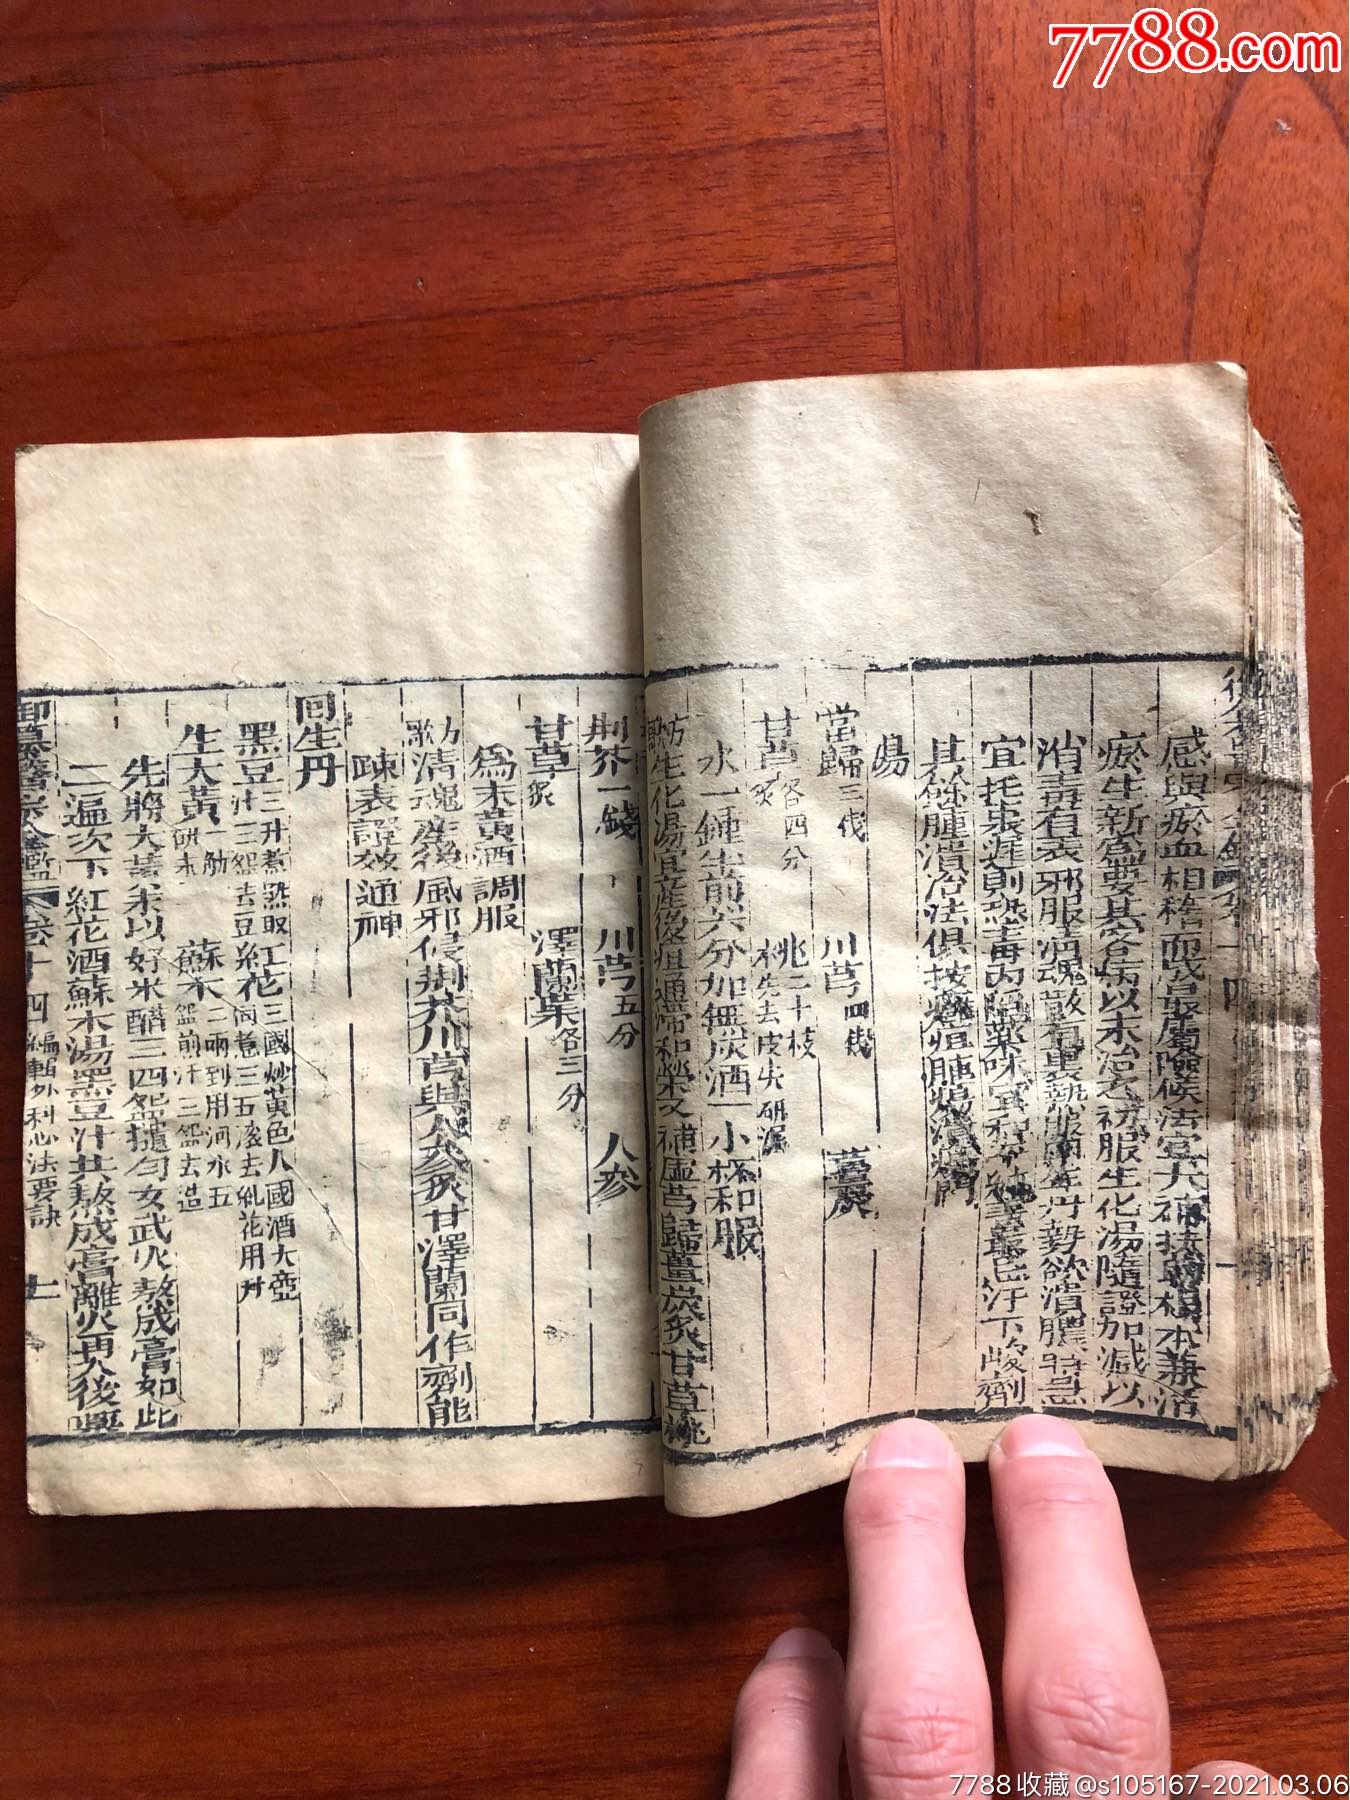 7788.com
感與瘀血相稽而成最屬險候法宜大補扶助根本兼活
瘀生新為要甚勿病以未治之初服生化湯隨證加減以
消毒有表邪服清魂散有裏熱服回生丹勢欲潰膿時急
宜托裏遲則恐毒內陷藥味宜和平
汗下峻劑
其餘腫潰治法俱按癰疽腫瘍潰瘍門
湯
當歸三錢 川芎四錢 薑炭
甘草炙各四分 桃二十枝去皮尖研泥
水一鍾半煎六分加無灰酒一小杯和服
方歌生化湯宜產後疽通滯和榮又補虛芎歸薑炭炙甘草桃
荆芥一錢 川芎五分 人參
甘草炙 澤蘭葉各三分
為末黃酒調服
方歌清魂產後風邪侵荆芥川芎與人參炙甘澤蘭同作劑能
疎表證效通神
回生丹
黑豆三升煮熟取汁三碗去豆 紅花三國炒黃色入國酒大壺同煮三五滚去紅花用汁
生大黃一觔研末 蘇木二兩剉用河水五碗煎汁三碗去渣
先將大黃末以好米醋三四碗攪勻文武火熬成膏如此
二遍次下紅花酒蘇木湯黑豆汁共熬成膏離火再入後藥
御纂醫宗金鑑 卷十四 編輯外科心法要訣 七
7788收藏@s105167-2021.03.06